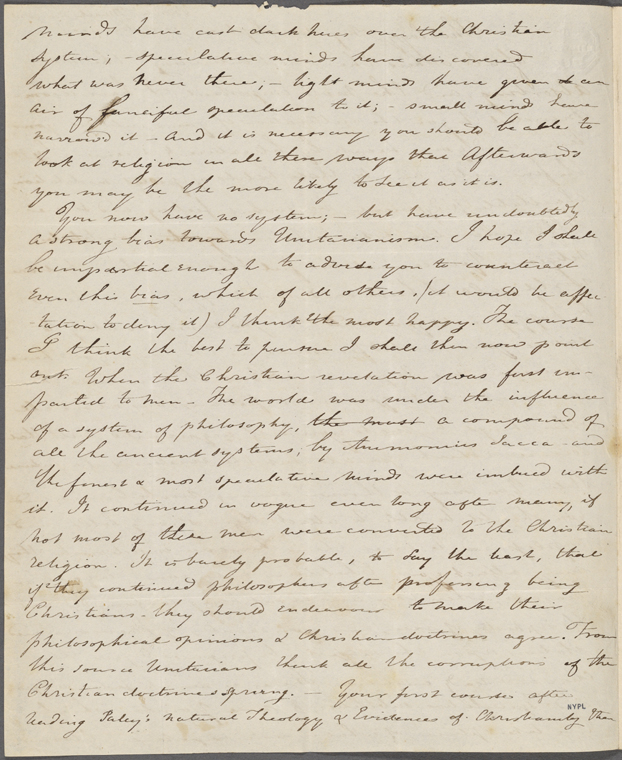 minds have cast dark hues over the Christian
system; - speculative minds have discovered
what was never there; - light minds have given an
air of fanciful speculation to it; - small minds have
narrowed it - And it is necessary you should be able to
look at religion in all these ways that Afterwards
you may be the more likely to see it as it is.
You now have no system; - but have undoubtedly
a strong bias towards Unitarianism. I hope I shall
be impartial enough to advise you to counteract
even this bias, which of all others, (it would be affec-
tation to deny it) I think the most happy. The course
I think the best to pursue I shall then now point
out. When the Christian revelation was first im-
parted to men - The world was under the influence
of a system of philosophy, the most a compound of
all the ancient systems, by Ammonius Sacca - and
the finest & most speculative minds were imbued with
it. It continued in vogue even long after many, if
not most of these men were converted to the Christian
religion. It is barely probable, to say the least, that
if they continued philosophers after professing being
Christians - they should endeavour to make their
philosophical opinions & Christian doctrines agree. From
this source Unitarians think all the corruptions of the
Christian doctrines sprung. - Your first course after
reading Paley's Natural Theology & Evidences of Christianity
NYPL